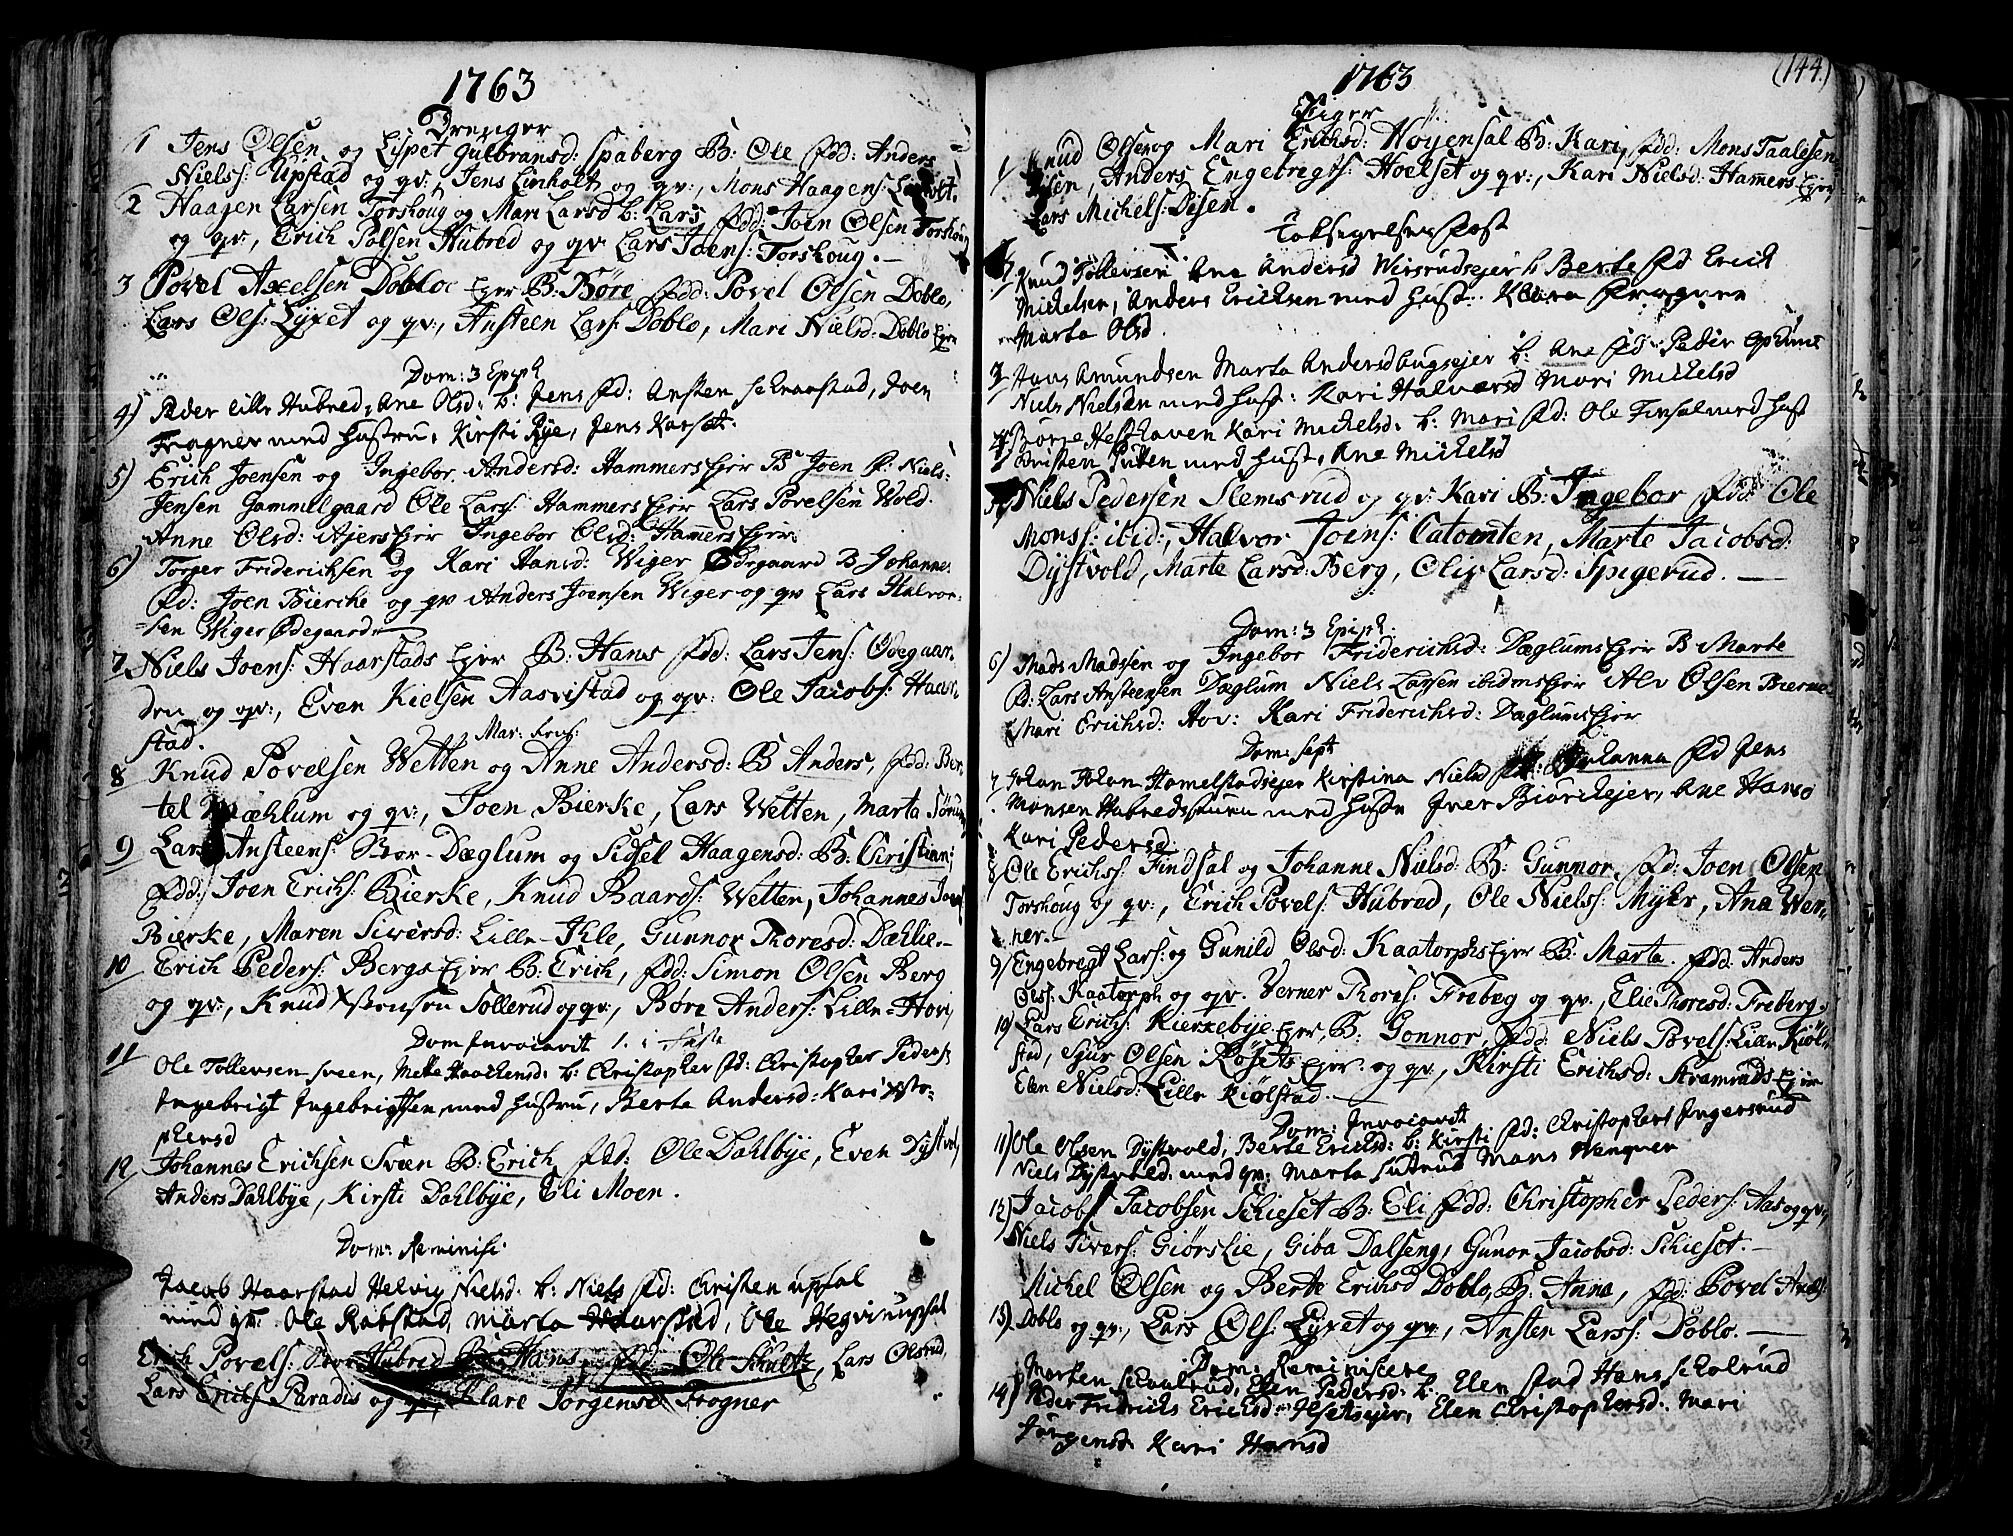 1763
Drenger
1 Jens Olsen og Lÿset Gulbransd: Spaberg B: Ole Fdd: Anders
Niels: Upstad og qv:, Jens Linholt og qv:, Mons Haagens:
2 Haagen Larsen Torshoug og Mari Larsd b: Lars Fdd: Joen Olsen Torshoug
og qv:, Erich Polsen Hubred og qv: Lars Joens: Torshoug.
3 Povel Axelsen Dobloe Ejer B: Børe Fdd: Povel Olsen Doblo,
Lars Ols: Lÿset og qv:, Ansteen Lars: Doblo, Mari Nielsd: Doblo Ejer
Dom: 3 Epiph
4) Peder Lille Hubred, Ane Olsd: b: Jens Fd: Ansten Schraastad, Joen
Frogner med Hustru, Kirsti Rye, Jens Karset.
5) Erich Joensen og Ingebor Andersd: Hammers Ejer B Joen F: Niels
Jensen Gammelgaard Ole Lars: Hammers Ejer Lars Povelsen Wold
Anne Olsd: Ajers Ejer Ingebor Olsd: Hamers Ejer.
6) Torger Friderichsen og Kari Hansd: Wiger Ødegaard B Johannes
Fd: Joen Bierche og qv Anders Joensen Wiger og qv Lars Halvor-
sen Wiger Ødegaard
7 Niels Joens: Haarstads Ejer B: Hans Fdd: Lars Jens: Ødegaar-
den og qv:, Even Kielsen Aasvistad og qv: Ole Jacobs: Haar-
stad.
Mar: Pros:
8 Knud Povelsen Wetten og Anne Andersd: B Anders, Fdd: Ber-
tel Mæhlum og qv:, Joen Bierke, Lars Wetten, Marta
9 Lars Ansteens: Stor-Dæglum og Sidsel Haagensd: B: Christian:
Fdd: Joen Erichs: Bierke, Knud Baards: Wetten, Johannes
Bierke, Maren Siversd: Lille-Ihle, Gunnor Thoresd: Dæhlie.
10 Erich Peders: Bergs Ejer B: Erich, Fdd: Simon Olsen Berg
og qv:, Knud Sollerud og qv:, Børe Anders: Lille-Hov,
Dom Invocavit 1. i Faste
11 Ole Tollevsen Sveen, Mette Haachensd: b: Christopher Fd: Christopher Peders:
Ingebrigt Ingebrigtsen med Hustru, Berta Andersd: Kari Xsto-
phersd
12 Johannes Erichsen Svæn B: Erich Fdd: Ole Dahlbÿe, Even Dÿstvol,
Anders Dahlbÿe, Kirsti Dahlbÿe, Eli Moen.
Dom: Reminisc:
Jacob Haarstad Helvig Nielsd: b: Niels Fd: Christen Upsal
med qv: Ole Rabstad, Marta Haarstad, Ole Hegvirupsal
Erich Povels: Stor Hubred B: Hans, Fdd: Ole Schultz, Lars Olsrud,
Lars Erichs: Paradis og qv, Klare Jørgensd Frogner
(144)
1763
Piger
1 Knud Olsen og Mari Erichsd: Hoyensal B: Kari, Fdd: Mons Taalesen
Disen, Anders Engebregts: Hoelset og qv:, Kari Nielsd: Hamers Ejer
Lars Michels: Disen.
Løksigelses Fest
2 Knud Tollevsen Ane Andersd Wisrudsejer b Berte Fd Erich
Michelsen, Anders Ericksen med Hust: Klara Frogner
Marta Olsd
3 Hans Amundsen Marta Andersd Augsejer b: Ane Fd: Peder Ophuus
Niels Nielsen med Hust: Kari Halvarsd Mari Michelsd
4 Børre Hesthaven Kari Michelsd: b: Mari Fd: Ole Finsal med Hust
Christen Putten med Hust, Ane Michelsd
5 Niels Pedersen Slemsrud og qv: Kari B: Ingebor Fdd: Ole
Mons: ibid:, Halvor Joens: Catomten, Marte Jacobsd:
Dÿstvold, Marte Larsd: Berg, Oliv Larsd: Spigerud.
Dom: 3 Epiph:
6) Mads Madsen og Ingebor Friderichsd: Dæglums Ejer B Marte
Fd: Lars Ansteensen Dæglum Niels Larsen ibidms Ejer Alv Olsen Bierke
Mari Erichsd: Hov: Kari Friderichsd: Dæglums Ejer
Dom: Sept
7 Johan Johan Hamelstadsejer Kirstina Nielsd Johanna Fd Jens
Monsen Hubredstuen med Hustr Iver Biørchejer, Ane Hansd
Kari Pedersd
8) Ole Erichs: Findsal og Johanne Nielsd: B: Gunnor. Fd: Joen Olsen
Torshoug og qv:, Erich Povels: Hubred, Ole Niels: Mÿhr, Ana Wer-
ner.
9) Engebregt Lars: og Gunild Olsd: Kaatorphs Ejer B: Marta. Fdd: Anders
Ols: Kaatorph og qv. Verner Thores: Freberg og qv:, Elie Thoresd: Freberg.
10) Lars Erichs: Kierkebÿe Ejer, B: Gonnor, Fdd: Niels Povels: Lille Kiøl-
stad, Siur Olsen Røsets Ejer: og qv:, Kirsti Erichsd: Stramrads Ejer
Elen Nielsd: Lille Kiølstad.
Dom: Invocavit
11) Ole Olsen Dÿstvold, Berte Erichsd: b: Kirsti Fd: Christophers Ingersrud
Niels Dÿstvold med qv: Marta Surrud Mans Wenquer
12) Jacobs Jacobsen Schieset B: Eli Fdd: Christopher Peders: Aas og qv:,
Niels Sivers: Giørslie, Giba Dalseng, Gunor Jacobsd: Schieset.
Michel Olsen og Berte Erichsd Doblo, B: Anna, Fdd: Povel Axels:
13) Doblo og qv:, Lars Ols: Lÿset og qv, Ansten Lars: Doblo.
Dom: Reminiscere
14) Morten Schaalrud, Elen Pedersd: b: Elen Hans Scholrud
Peder Fridrichs Ericksd: Ilsetsejer, Elen Christophersd: Mari
Jørgensd. Kari Hansd